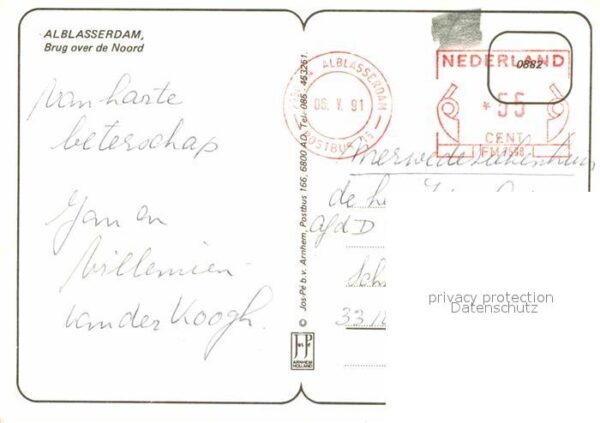 ALBLASSERDAM,
Brug over de Noord
van harte
beterschap
Jan en
Willemien
van der Koogh.
© Jos-Pé b.v. Arnhem, Postbus 166, 6800 AD, Tel. 085 - 463261
JP
ARNHEM
HOLLAND
ALBLASSERDAM
06. V. 91
POSTBUS
NEDERLAND
0882
*55
CENT
FM
Merwedeziekenhuis
de he
afd D
Sch
33
privacy protection
Datenschutz